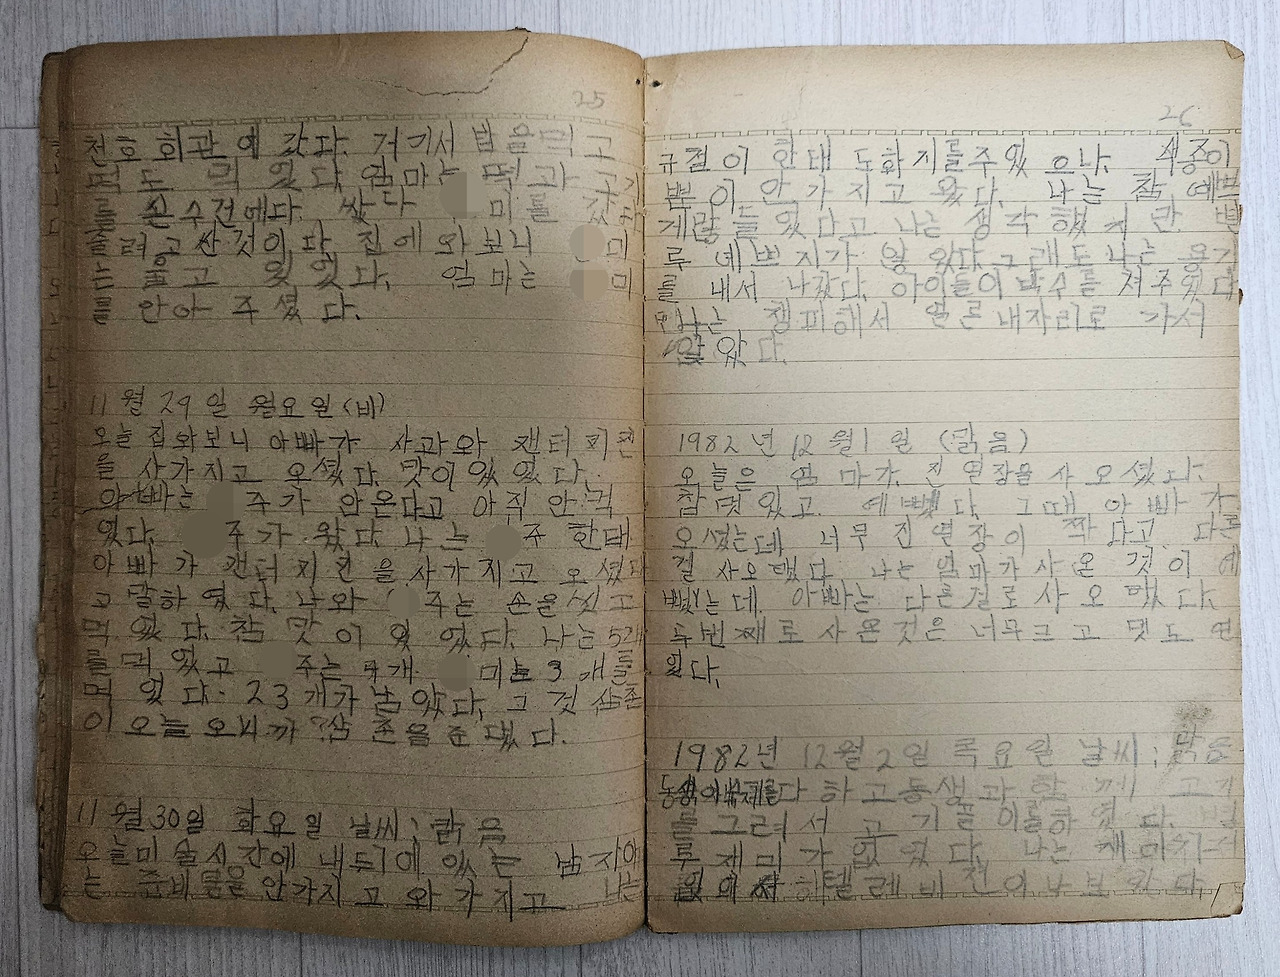 25
천호 회관에 갔다. 거기서 밥을먹고
먹도 먹었다 엄마는 떡과 고기
를 손수건에다. 쌌다 미를 갔다
줄려고 산것이다. 집에 와보니 미
는 울고 있었다. 엄마는 미
를 안아 주셨다.
11월 29일 월요일(비)
오늘 집와보니 아빠가 사과와 캔터치킨
을 사가지고 오셨다. 맛이있었다.
아빠는 주가 안온다고 아직 안먹
었다. 주가 왔다 나는 주 한태
아빠가 캔터치킨을사가지고 오셨다
고 말하였다. 나와 주는 손을씻고
먹었다. 참 맛이 있었다. 나는 5개
를먹었고 주는 4개 미는 3개를
먹었다. 23개가남았다. 그것 삼춘
이 오늘 오니까 삼춘을 준댔다.
11월30일 화요일 날씨; 맑음
오늘미술시간에 내두ㅣ에 있는 남자아
는 준비물을 안가지고 와가지고 나는
26
규철이 한태 도화지를주었으나. 색종이
뿐이 안가지고 왔다. 나는 참 예쁘
게만들었다고 나는 생각했지만 별
루 예쁘지가 않았다 그래도 나는 용기
를 내서 나갔다. 아이들이 박수를 쳐주었다
나는 챙피해서 얼른 내자리로 가서
앉았다.
1982년 12월1일 (맑음)
오늘은 엄마가. 진열장을 사오셨다.
참 멋있고. 예뻤다. 그때 아빠가
오셨는데 너무 진열장이 작다고 다른
걸 사오랬다. 나는 엄마가사온것이 예
뻤는데. 아빠는 다른걸로사오랬다.
두번째로 사온것은 너무크고 멋도 없
었다.
1982년 12월2일 목요일 날씨; 맑음
다하고동생과 함께 고기
를 그려서 고기 하였다. 별
루 재미가 없었다. 나는 재미가
텔레비전이나보았다.